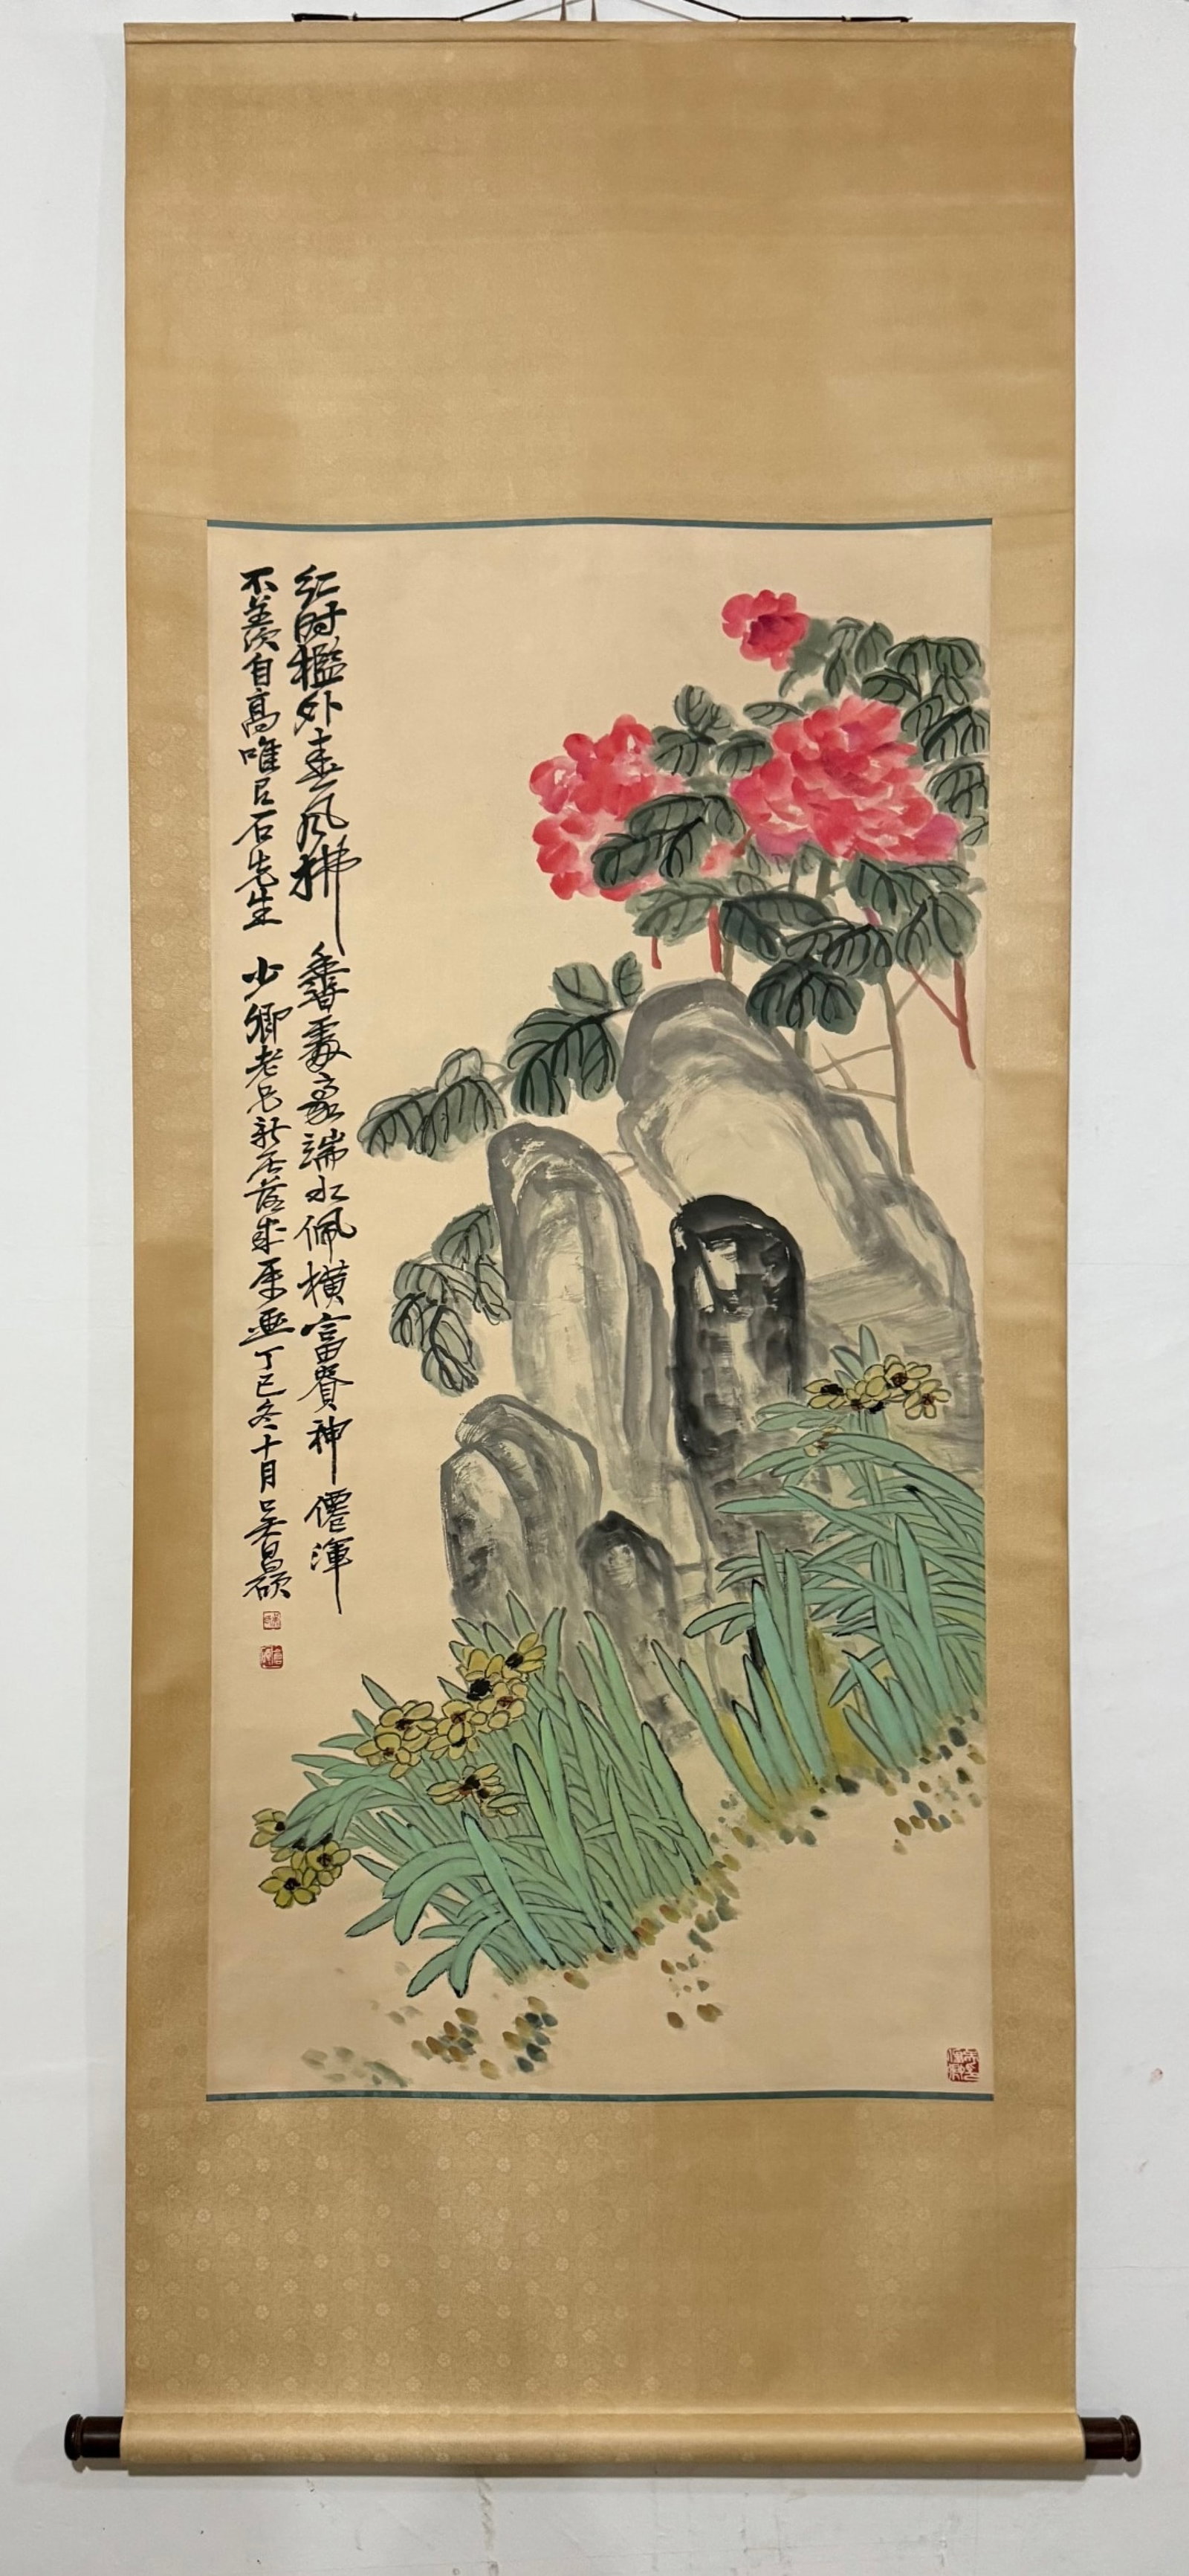 红时槛外春风拂 香处豪端水佩横富贵神僊浑
不羡次自高唯有石先生 少卿老兄新居落成属画丁巳冬十月吴昌硕